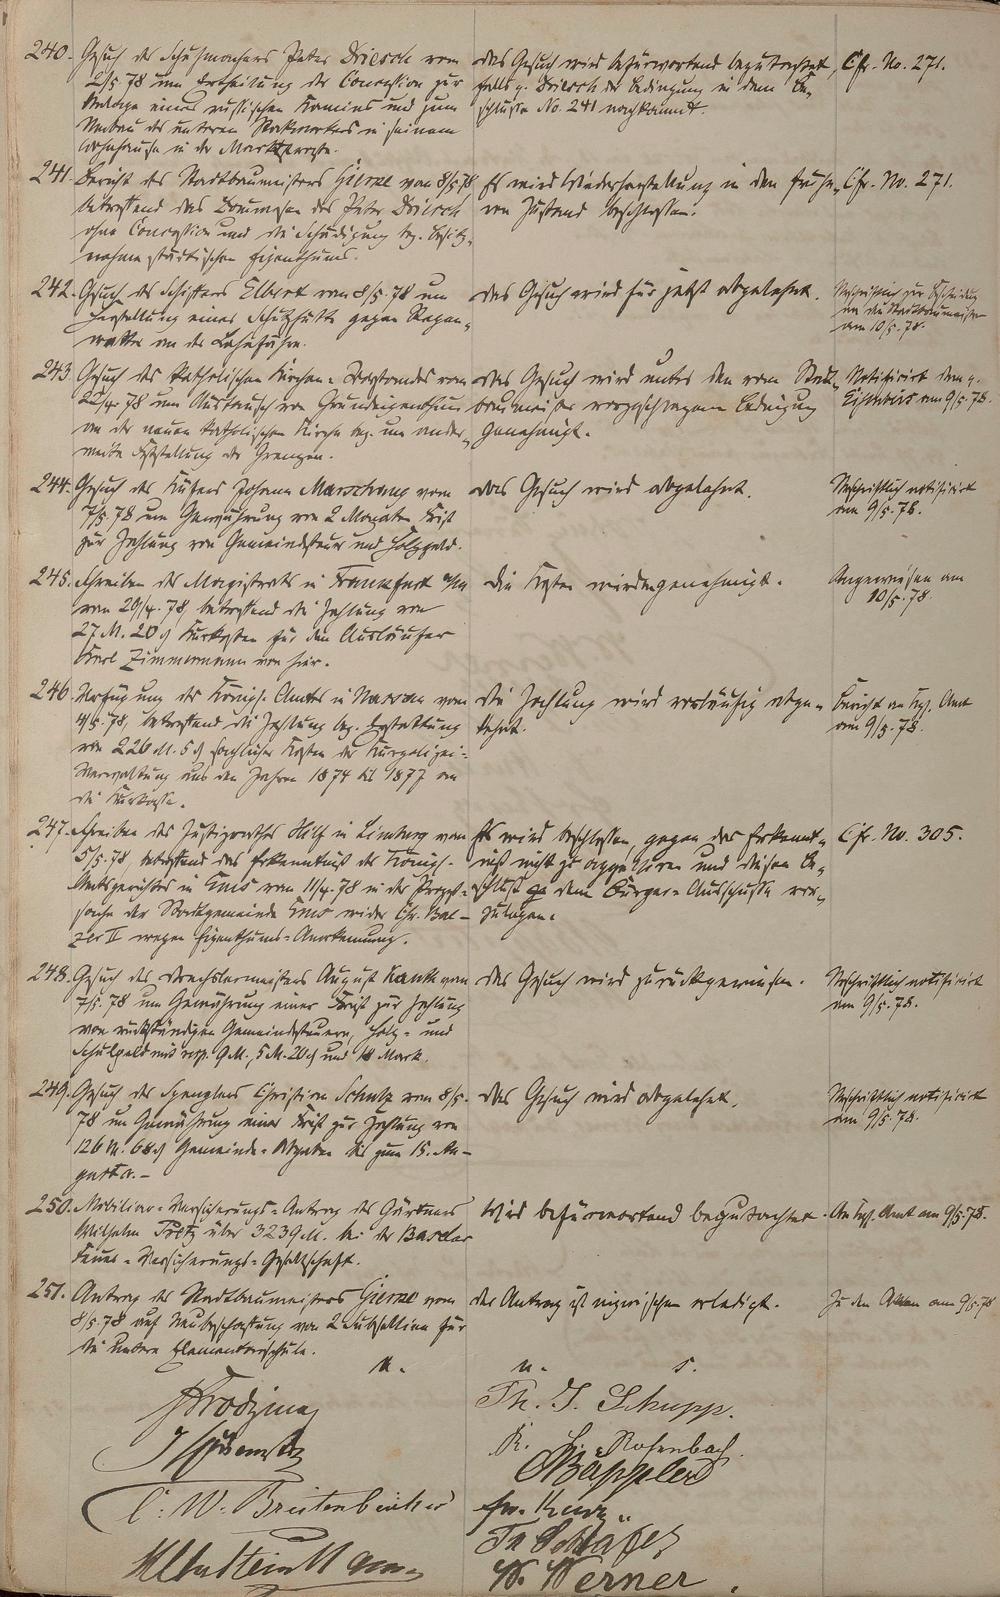 240. Gesuch des Schuhmachers Peter Driesch vom
2/5 78 um Ertheilung der Concession zur
Anlage eines russischen Kamins und zum
Umbau des unteren Stockwerkes in seinem
Wohnhause in der Marktstraße.
Das Gesuch wird befürwortend begutachtet,
falls p. Driesch der Bedingung in dem Be-
schlusse No. 241 nachkommt.
Cfr. No. 271.
241. Bericht des Stadtbaumeisters Gierse vom 8/5 78
betreffend das Bauwesen des Peter Driesch
ohne Concession und die Schädigung bez. Besitz-
nahme städtischen Eigenthums.
Es wird Wiederherstellung in den frühe-
ren Zustand beschlossen.
Cfr. No. 271.
242. Gesuch des Schiffers Elbert vom 8/5. 78 um
Herstellung einer Schutzhütte gegen Regen-
wetter an der Lahnfähre.
Das Gesuch wird für jetzt abgelehnt.
am 10/5. 78.
243. Gesuch des katholischen Kirchen-Vorstandes vom
78 um Austausch von Grundeigenthum
an der neuen katholischen Kirche bez. um ander-
weite Feststellung der Grenzen.
Das Gesuch wird unter den vom Stadt-
baumeister vorgeschlagenen Bedingung
genehmigt.
Notificirt dem p.
am 9/5. 78.
244. Gesuch des Küfers Johann Marschang vom
7/5. 78 um Gewährung von 2 Monaten Frist
zur Zahlung von Gemeindesteuer und Holzgeld.
Das Gesuch wird abgelehnt.
Abschriftlich notificirt
am 9/5. 78.
245. Schreiben des Magistrats in Frankfurt a/M
vom 29/4. 78, betreffend die Zahlung von
27 M. 20 ₰ Kurkosten für den Ausläufer
Karl Zimmermann von hier.
Die Kosten werden genehmigt.
Angewiesen am
10/5. 78.
246. Verfügung des Königl. Amtes in Nassau vom
4/5. 78, betreffend die Zahlung bez. Erstattung
von 226 M. 5 ₰ sächlicher Kosten der Kurpolizei-
Verwaltung aus den Jahren 1874 bis 1877 an
die Kurkasse.
Die Zahlung wird vorläufig abge-
lehnt.
Bericht an Kgl. Amt
am 9/5. 78.
247. Schreiben des Justizrathes Hilf in Limburg vom
5/5. 78, betreffend das Erkenntniß des Königl.
Amtsgerichtes in Ems vom 11/4. 78 in der Prozeß-
sache der Stadtgemeinde Ems wider Chr. Bal-
zer II wegen Eigenthums-Anerkennung.
Es wird beschlossen, gegen das Erkennt-
niß nicht zu appelliren und diesen Be-
schluß dem Bürger-Ausschusse vor-
zulegen.
Cfr. No. 305.
248. Gesuch des Drechslermeisters August Kauth vom
7/5. 78 um Gewährung einer Frist zur Zahlung
von rückständigen Gemeindesteuern, Holz- und
Schulgeld mit resp. 9 M., 5 M. 20 ₰ und 18 Mark.
Das Gesuch wird zurückgewiesen.
Abschriftlich notificirt
am 9/5. 78.
249. Gesuch des Spenglers Christian Schulz vom 8/5.
78 um Gewährung einer Frist zur Zahlung von
126 M. 68 ₰ Gemeinde-Abgaben bis zum 15. Au-
gust cr.
Das Gesuch wird abgelehnt.
Abschriftlich notificirt
am 9/5. 78.
250. Mobiliar-Versicherungs-Antrag des Gärtners
Wilhelm Fritz über 3239 M. bei der Baseler
Feuer-Versicherungs-Gesellschaft.
Wird befürwortend begutachtet.
An Kgl. Amt am 9/5. 78.
251. Antrag des Stadtbaumeisters Gierse vom
8/5. 78 auf Neubeschaffung von 2 Subsellien für
die untere Elementarschule.
Der Antrag ist inzwischen erledigt.
Zu den Akten am 9/5 78
v. u. s.
Th. J. Schupp.
R. Rosenbach
Bäppler
C. W. Breitenbücher
Fr. Kurz
Fr Schäfer
W. Werner.